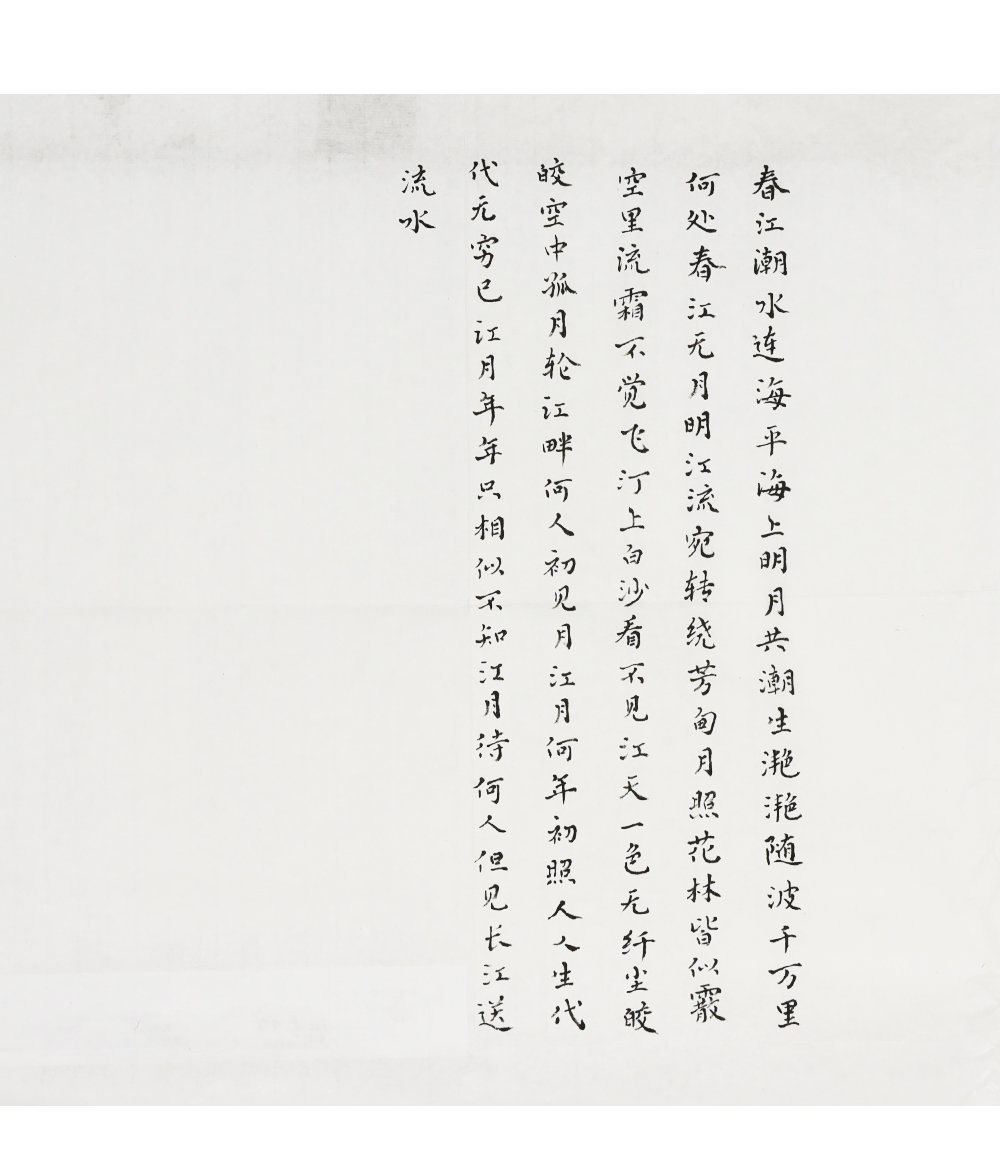 春江潮水连海平海上明月共潮生滟滟随波千万里
何处春江无月明江流宛转绕芳甸月照花林皆似霰
空里流霜不觉飞汀上白沙看不见江天一色无纤尘皎
皎空中孤月轮江畔何人初见月江月何年初照人人生代
代无穷已江月年年只相似不知江月待何人但见长江送
流水